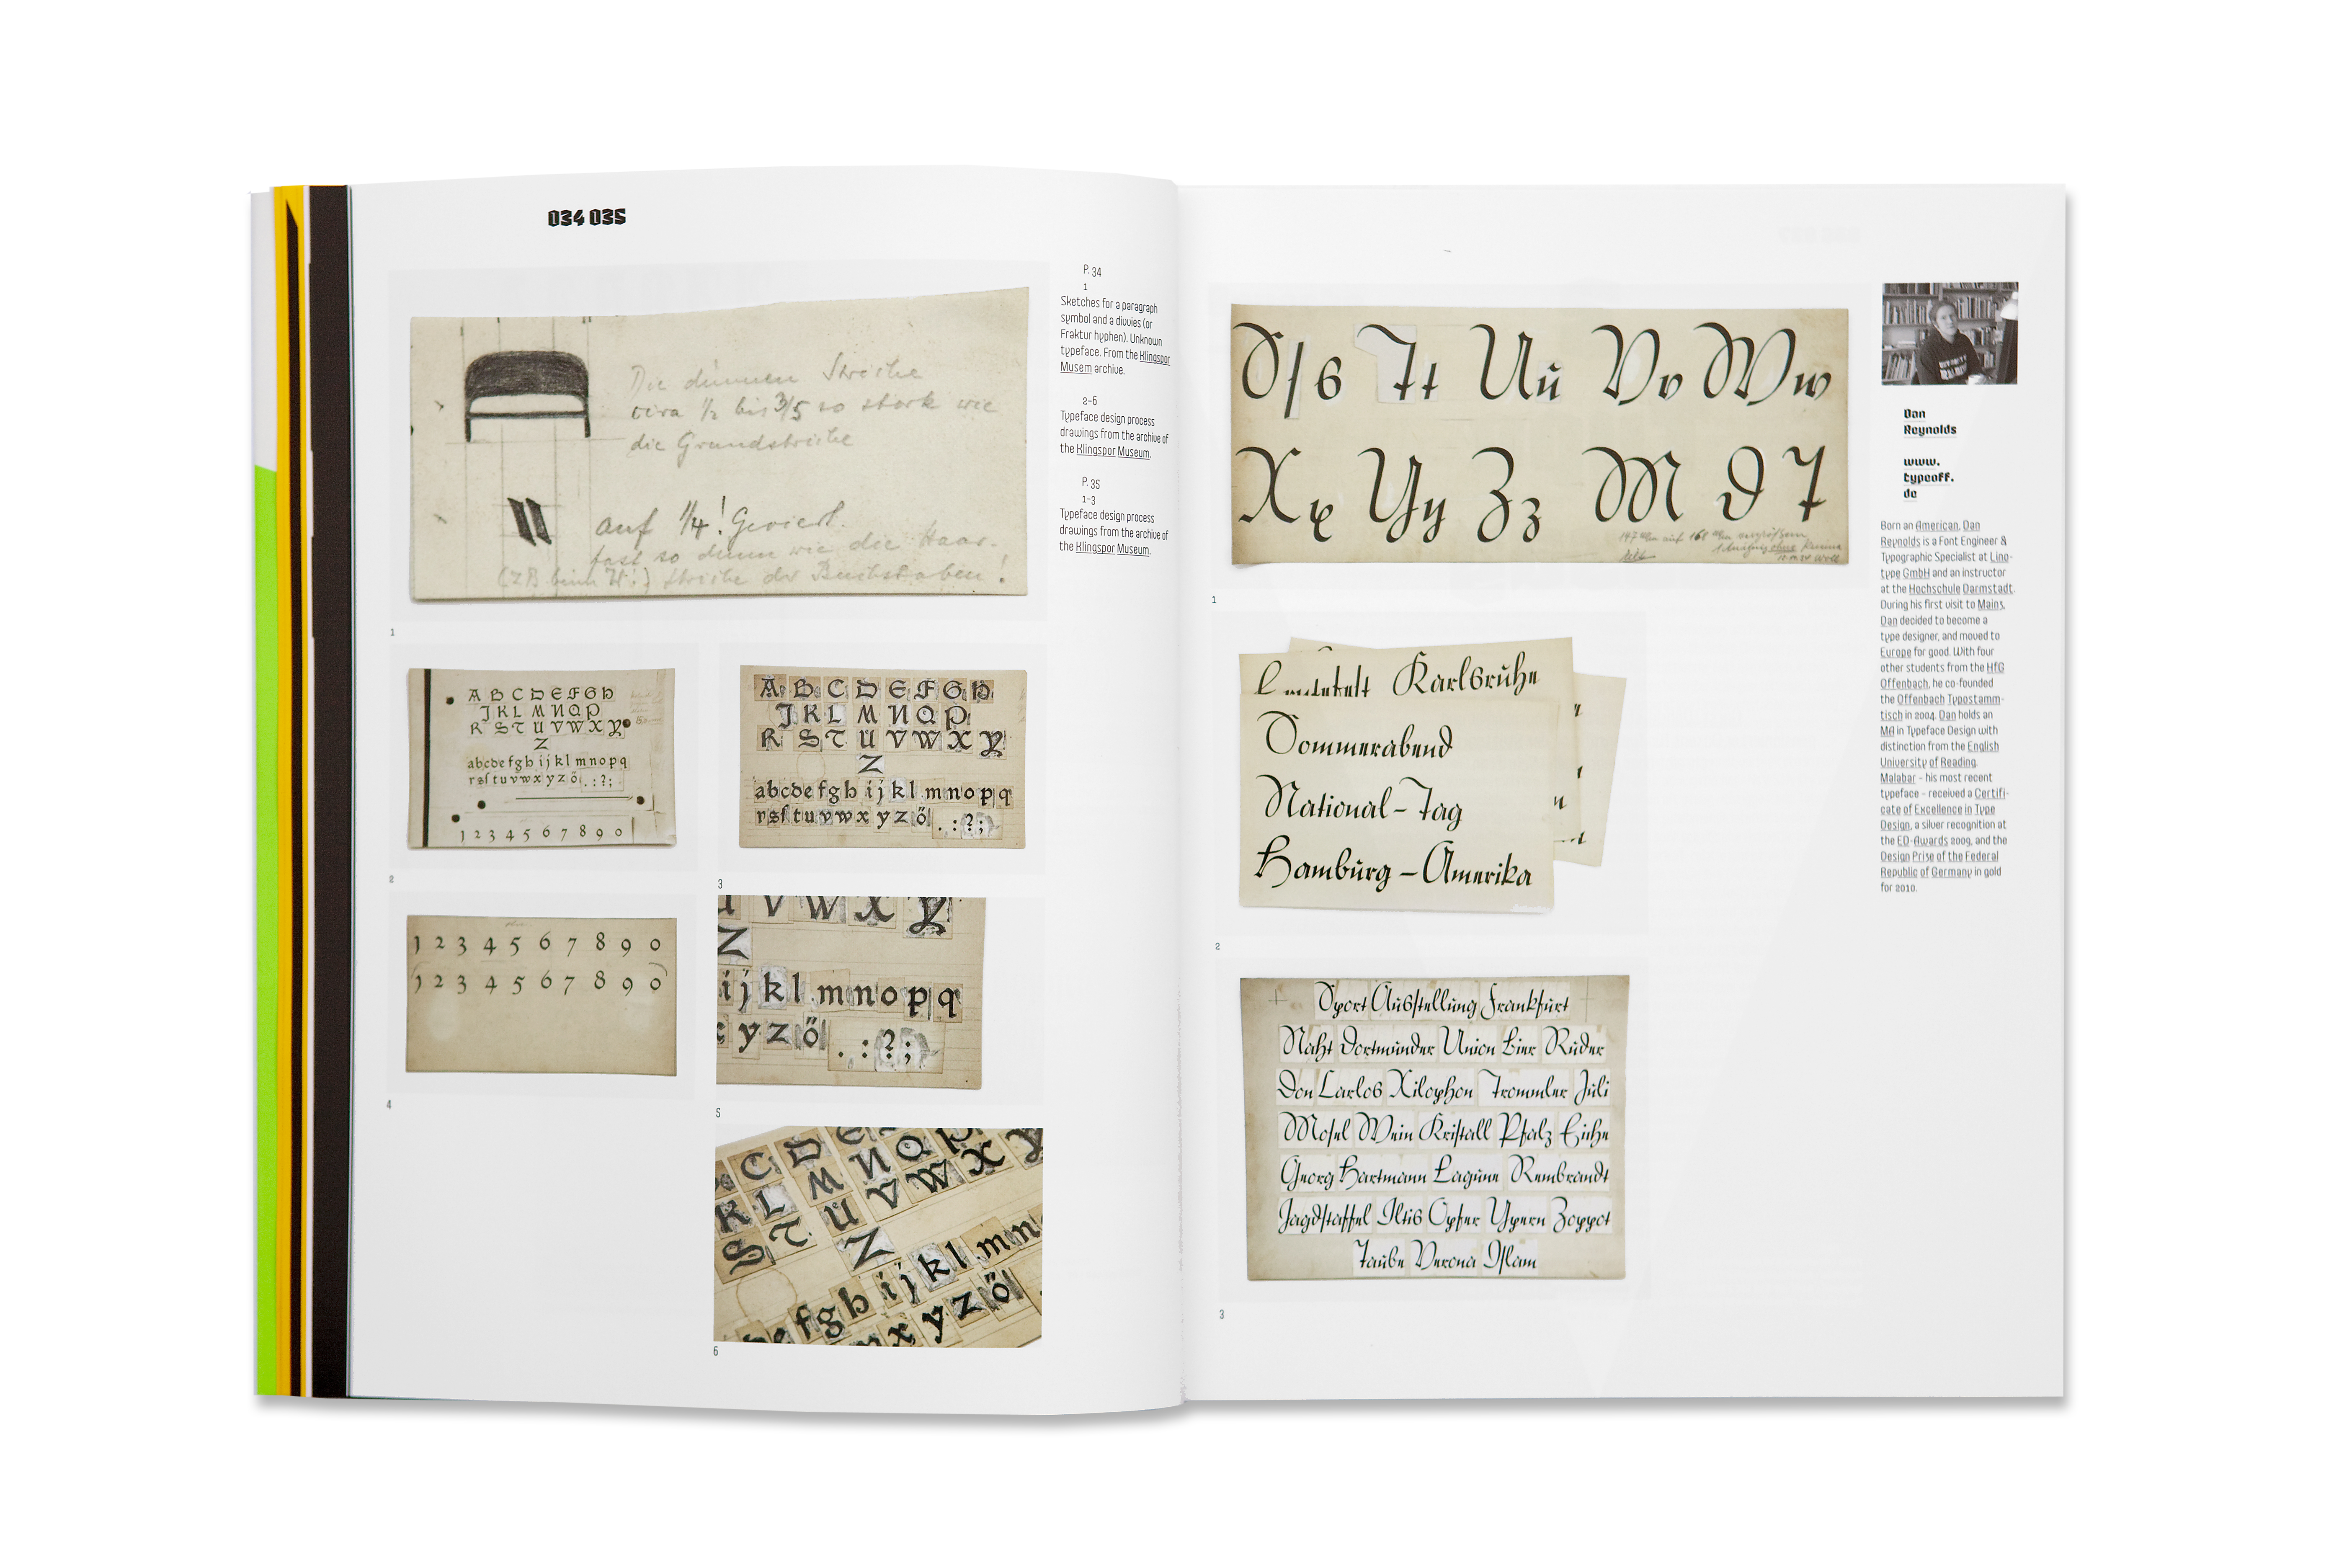 034 035
Die dünnen Striche
circa 1/2 bis 3/5 so stark wie
die Grundstriche
auf 1/4! Geviert.
fast so dünn wie die Haar-
(z.B. beim W:) striche der Buchstaben!
1
P. 34
1
Sketches for a paragraph
symbol and a divvies (or
Fraktur hyphen). Unknown
typeface. From the Klingspor
Musem archive.
2-6
Typeface design process
drawings from the archive of
the Klingspor Museum.
P. 35
1-3
Typeface design process
drawings from the archive of
the Klingspor Museum.
A B C D E F G H
J K L M N O P
R S T U V W X Y
Z
a b c d e f g h i j k l m n o p q
r s ſ t u v w x y z ö . : ? ;
1 2 3 4 5 6 7 8 9 0
2
A B C D E F G H
J K L M N O P
R S T U V W X Y
Z
a b c d e f g h i j k l m n o p q
r s ſ t u v w x y z ö . : ? ;
3
1 2 3 4 5 6 7 8 9 0
1 2 3 4 5 6 7 8 9 0
4
U V W X Y
Z
i j k l m n o p q
x y z ö . : ? ;
5
C D E
K L M N O P Y
S T U V W X
Z
e f g h i j k l m n
x y z ö
6
S ſ s T t U u V v W w
X x Y y Z z M D T
1
Karlsruhe
Sommerabend
National-Tag
Hamburg-Amerika
2
Sport Ausſtellung Frankfurt
Nacht Dortmunder Union Bier Ruder
Don Carlos Xilophon Trommler Juli
Moſel Wein Kriſtall Pfalz Eiche
Georg Hartmann Lagune Rembrandt
Jagdſtaffel Iltis Opfer Ypern Zoppot
Taube Verona Iſlam
3
Dan
Reynolds
www.
typeoff.
de
Born an American, Dan
Reynolds is a Font Engineer &
Typographic Specialist at Lino-
type GmbH and an instructor
at the Hochschule Darmstadt.
During his first visit to Mainz,
Dan decided to become a
type designer, and moved to
Europe for good. With four
other students from the HfG
Offenbach, he co-founded
the Offenbach Typostamm-
tisch in 2004. Dan holds an
MA in Typeface Design with
distinction from the English
University of Reading.
Malabar – his most recent
typeface – received a Certifi-
cate of Excellence in Type
Design, a silver recognition at
the ED-Awards 2009, and the
Design Prise of the Federal
Republic of Germany in gold
for 2010.